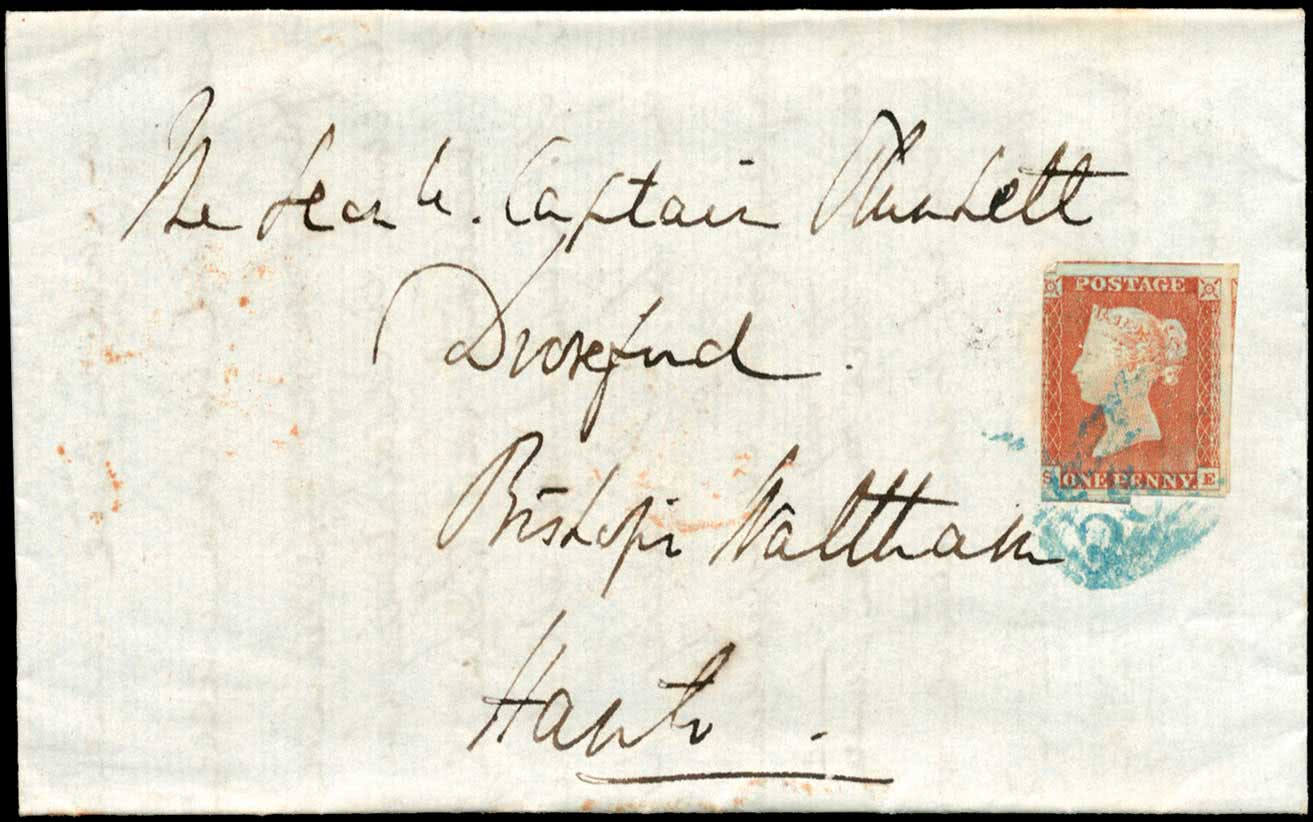 The Hon ble. Captain Plunkett
Droxford.
Bishops Waltham
Hants.
POSTAGE
S ONE PENNY. E